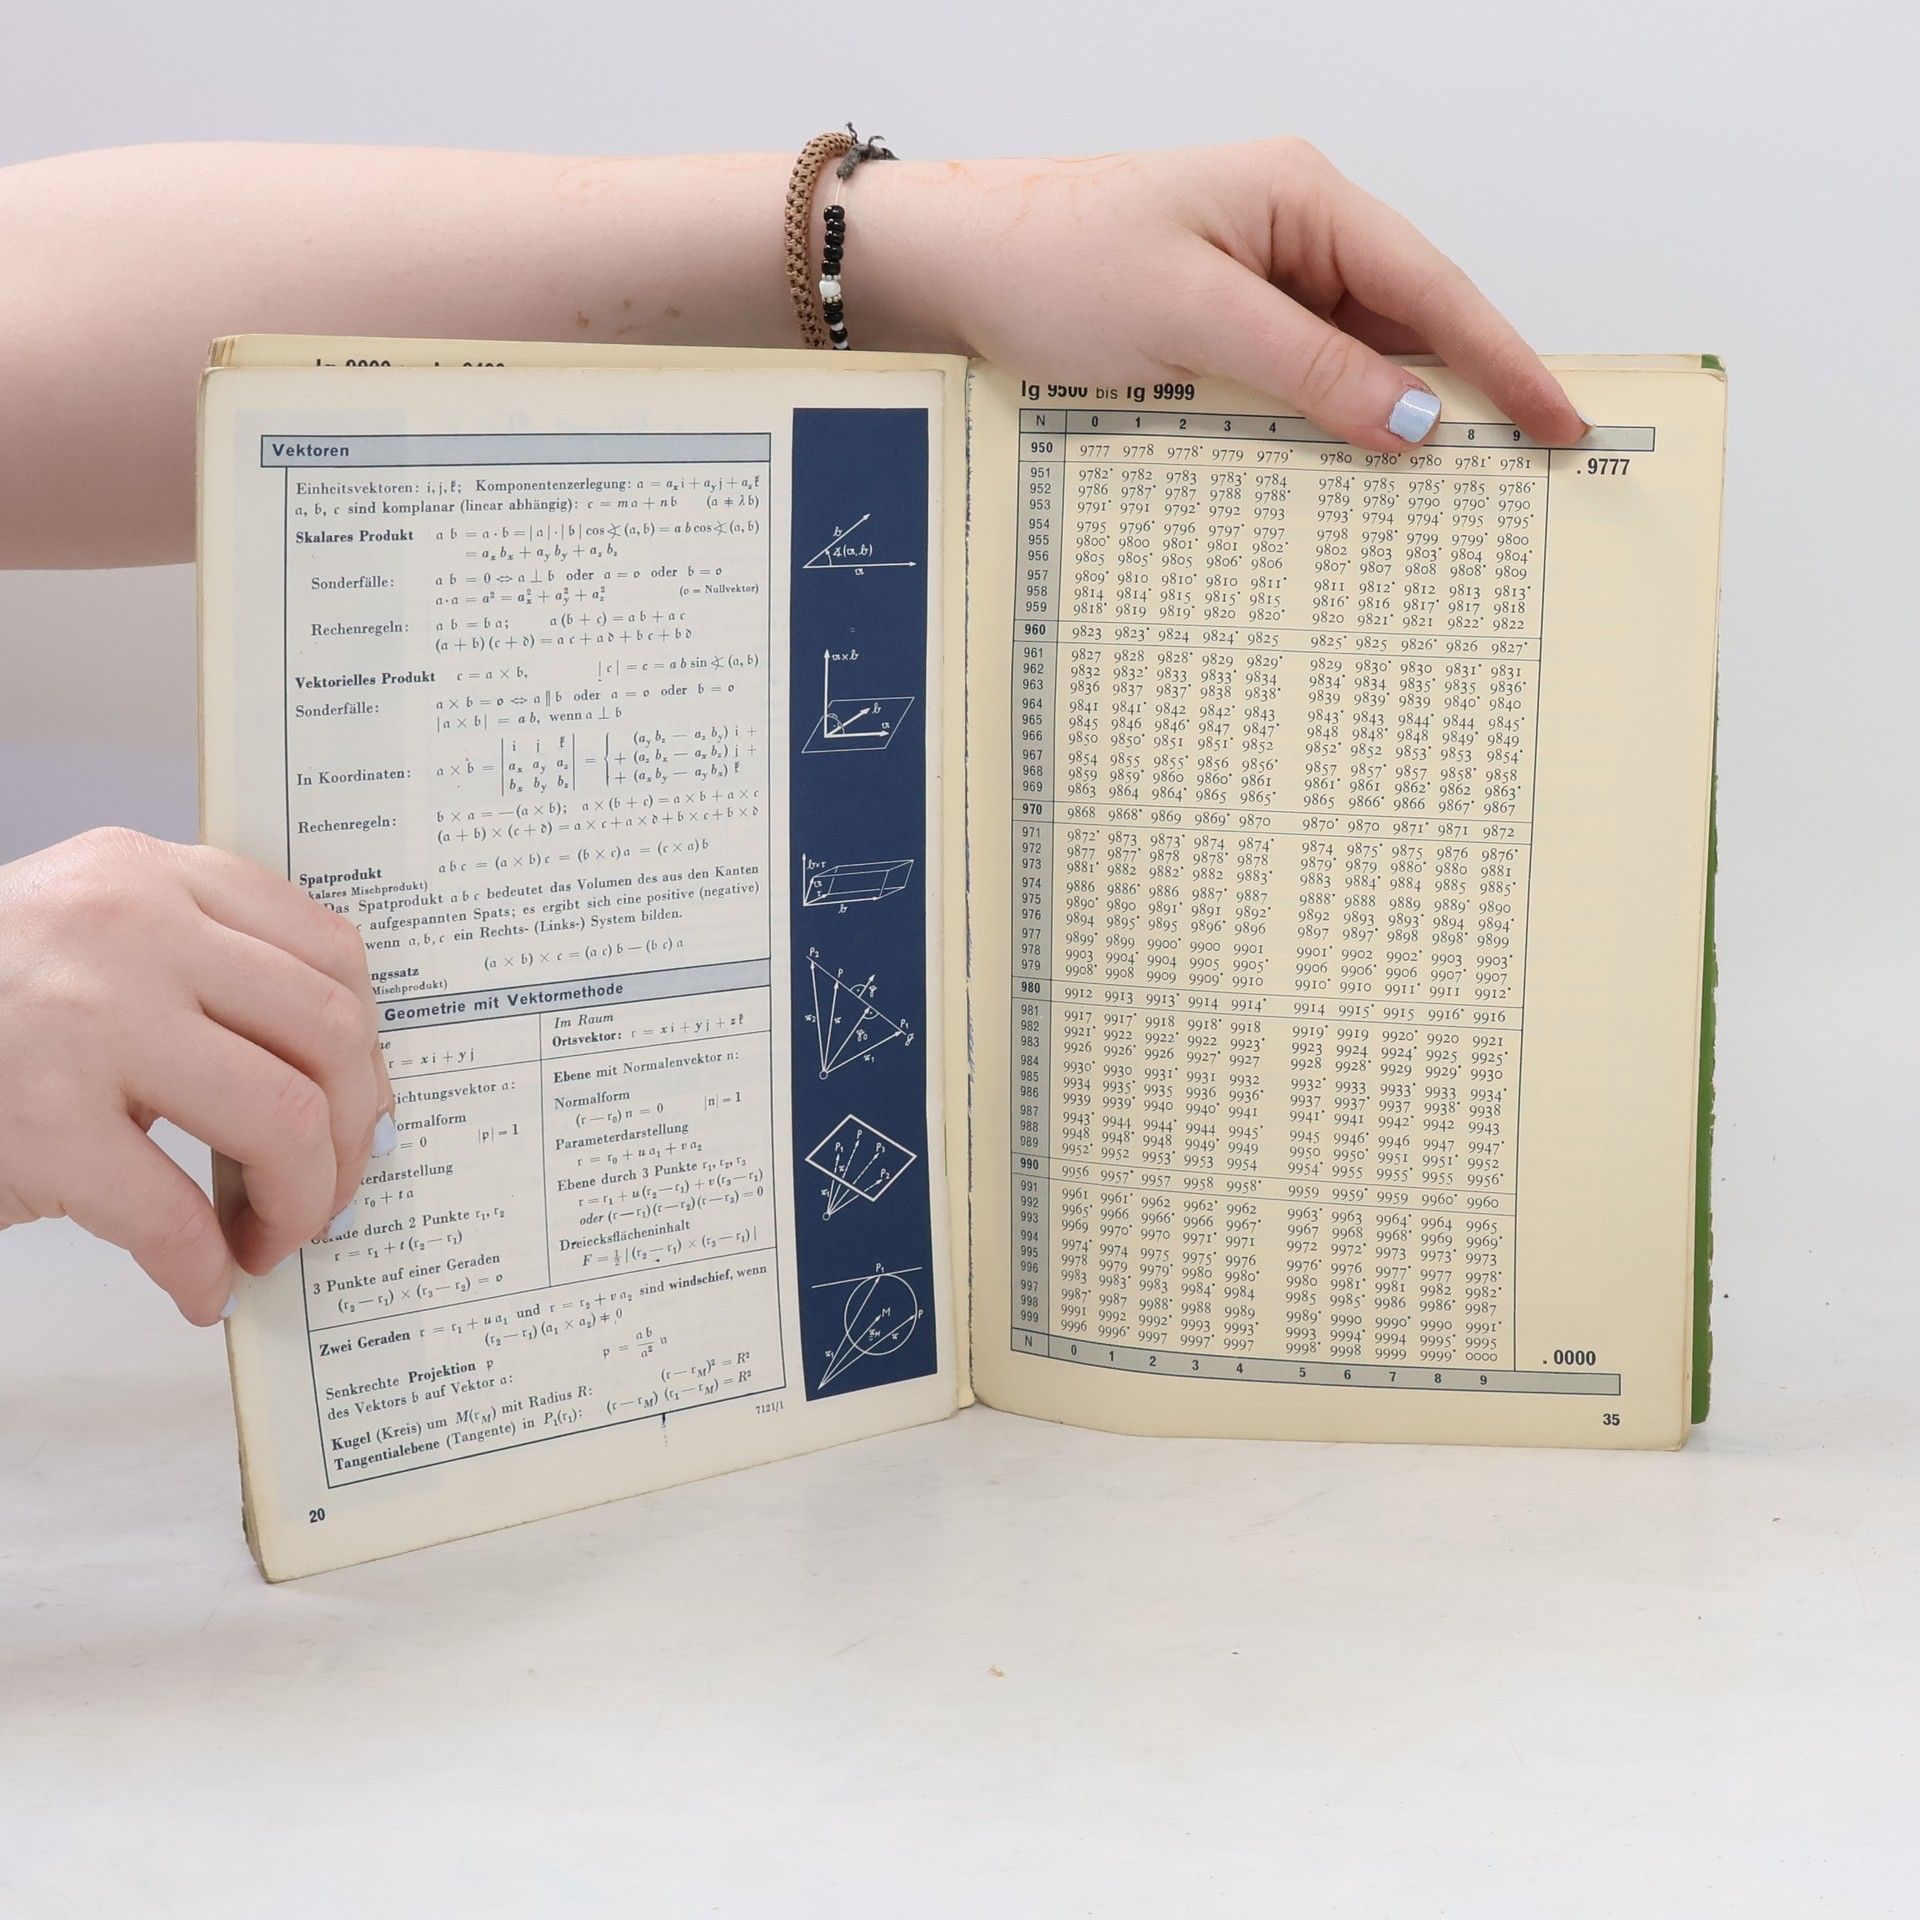 Vektoren
Einheitsvektoren: i, j, k; Komponentenzerlegung: a = aₓ i + aᵧ j + a_z k
a, b, c sind komplanar (linear abhängig): c = m a + n b (a ≠ λ b)
Skalares Produkt a b = a · b = |a| · |b| cos ∢ (a, b) = a b cos ∢ (a, b)
= aₓ bₓ + aᵧ bᵧ + a_z b_z
Sonderfälle: a b = 0 ⇔ a ⊥ b oder a = o oder b = o
a · a = a² = aₓ² + aᵧ² + a_z² (o = Nullvektor)
Rechenregeln: a b = b a; a (b + c) = a b + a c
(a + b) (c + d) = a c + a d + b c + b d
Vektorielles Produkt c = a × b, |c| = c = a b sin ∢ (a, b)
Sonderfälle: a × b = o ⇔ a ∥ b oder a = o oder b = o
|a × b| = a b, wenn a ⊥ b
In Koordinaten: a × b = | i j k ; aₓ aᵧ a_z ; bₓ bᵧ b_z | = { (aᵧ b_z − a_z bᵧ) i +
+ (a_z bₓ − aₓ b_z) j +
+ (aₓ bᵧ − aᵧ bₓ) k
Rechenregeln: b × a = − (a × b); a × (b + c) = a × b + a × c
(a + b) × (c + d) = a × c + a × d + b × c + b × d
Spatprodukt a b c = (a × b) c = (b × c) a = (c × a) b
kalares Mischprodukt)
Das Spatprodukt a b c bedeutet das Volumen des aus den Kanten
c aufgespannten Spats; es ergibt sich eine positive (negative)
wenn a, b, c ein Rechts- (Links-) System bilden.
ngssatz (a × b) × c = (a c) b − (b c) a
Mischprodukt)
Geometrie mit Vektormethode
ne
r = x i + y j
Im Raum
Ortsvektor: r = x i + y j + z k
ichtungsvektor a:
ormalform
= 0 |p| = 1
terdarstellung
r₀ + t a
Gerade durch 2 Punkte r₁, r₂
r = r₁ + t (r₂ − r₁)
3 Punkte auf einer Geraden
(r₂ − r₁) × (r₃ − r₂) = o
Ebene mit Normalenvektor n:
Normalform
(r − r₀) n = 0 |n| = 1
Parameterdarstellung
r = r₀ + u a₁ + v a₂
Ebene durch 3 Punkte r₁, r₂, r₃
r = r₁ + u (r₂ − r₁) + v (r₃ − r₁)
oder (r − r₁) (r − r₂) (r − r₃) = 0
Dreiecksflächeninhalt
F = ½ | (r₂ − r₁) × (r₃ − r₁) |
Zwei Geraden r = r₁ + u a₁ und r = r₂ + v a₂ sind windschief, wenn
(r₂ − r₁) (a₁ × a₂) ≠ 0
Senkrechte Projektion p
des Vektors b auf Vektor a: p = a b / a² a
Kugel (Kreis) um M(r_M) mit Radius R: (r − r_M)² = R²
Tangentialebene (Tangente) in P₁(r₁): (r − r_M) (r₁ − r_M) = R²
7121/1
20
lg 9500 bis lg 9999
N 0 1 2 3 4 8 9
950 9777 9778 9778• 9779 9779• 9780 9780• 9780 9781• 9781
.9777
951 9782• 9782 9783 9783• 9784 9784• 9785 9785• 9785 9786•
952 9786 9787• 9787 9788 9788• 9789 9789• 9790 9790• 9790
953 9791• 9791 9792• 9792 9793 9793• 9794 9794• 9795 9795•
954 9795 9796• 9796 9797• 9797 9798 9798• 9799 9799• 9800
955 9800• 9800 9801• 9801 9802• 9802 9803 9803• 9804 9804•
956 9805 9805• 9805 9806• 9806 9807• 9807 9808 9808• 9809
957 9809• 9810 9810• 9810 9811• 9811 9812• 9812 9813 9813•
958 9814 9814• 9815 9815• 9815 9816• 9816 9817• 9817 9818
959 9818• 9819 9819• 9820 9820• 9820 9821• 9821 9822• 9822
960 9823 9823• 9824 9824• 9825 9825• 9825 9826• 9826 9827•
961 9827 9828 9828• 9829 9829• 9829 9830• 9830 9831• 9831
962 9832 9832• 9833 9833• 9834 9834• 9834 9835• 9835 9836•
963 9836 9837 9837• 9838 9838• 9839 9839• 9839 9840• 9840
964 9841 9841• 9842 9842• 9843 9843• 9843 9844• 9844 9845•
965 9845 9846 9846• 9847 9847• 9848 9848• 9848 9849• 9849
966 9850 9850• 9851 9851• 9852 9852• 9852 9853• 9853 9854•
967 9854 9855 9855• 9856 9856• 9857 9857• 9857 9858• 9858
968 9859 9859• 9860 9860• 9861 9861• 9861 9862• 9862 9863•
969 9863 9864 9864• 9865 9865• 9865 9866• 9866 9867• 9867
970 9868 9868• 9869 9869• 9870 9870• 9870 9871• 9871 9872
971 9872• 9873 9873• 9874 9874• 9874 9875• 9875 9876 9876•
972 9877 9877• 9878 9878• 9878 9879• 9879 9880• 9880 9881
973 9881• 9882 9882• 9882 9883• 9883 9884• 9884 9885 9885•
974 9886 9886• 9886 9887• 9887 9888• 9888 9889 9889• 9890
975 9890• 9890 9891• 9891 9892• 9892 9893 9893• 9894 9894•
976 9894 9895• 9895 9896• 9896 9897 9897• 9898 9898• 9899
977 9899• 9899 9900• 9900 9901 9901• 9902 9902• 9903 9903•
978 9903 9904• 9904 9905 9905• 9906 9906• 9906 9907• 9907
979 9908• 9908 9909 9909• 9910 9910• 9910 9911• 9911 9912•
980 9912 9913 9913• 9914 9914• 9914 9915• 9915 9916• 9916
981 9917 9917• 9918 9918• 9918 9919• 9919 9920• 9920 9921
982 9921• 9922 9922• 9922 9923• 9923 9924 9924• 9925 9925•
983 9926 9926• 9926 9927• 9927 9928 9928• 9929 9929• 9930
984 9930• 9930 9931• 9931 9932 9932• 9933 9933• 9933 9934•
985 9934 9935• 9935 9936 9936• 9937 9937• 9937 9938• 9938
986 9939 9939• 9940 9940• 9941 9941• 9941 9942• 9942 9943
987 9943• 9944 9944• 9944 9945• 9945 9946• 9946 9947 9947•
988 9948 9948• 9948 9949• 9949 9950 9950• 9951 9951• 9952
989 9952• 9952 9953• 9953 9954 9954• 9955 9955• 9955 9956•
990 9956 9957• 9957 9958 9958• 9959 9959• 9959 9960• 9960
991 9961 9961• 9962 9962• 9962 9963• 9963 9964• 9964 9965
992 9965• 9966 9966• 9966 9967• 9967 9968 9968• 9969 9969•
993 9969 9970• 9970 9971• 9971 9972 9972• 9973 9973• 9973
994 9974• 9974 9975 9975• 9976 9976• 9976 9977• 9977 9978•
995 9978 9979 9979• 9980 9980• 9980 9981• 9981 9982 9982•
996 9983 9983• 9983 9984• 9984 9985 9985• 9986 9986• 9987
997 9987• 9987 9988• 9988 9989 9989• 9990 9990• 9990 9991•
998 9991 9992 9992• 9993 9993• 9993 9994• 9994 9995• 9995
999 9996 9996• 9997 9997• 9997 9998• 9998 9999 9999• 0000
.0000
N 0 1 2 3 4 5 6 7 8 9
35